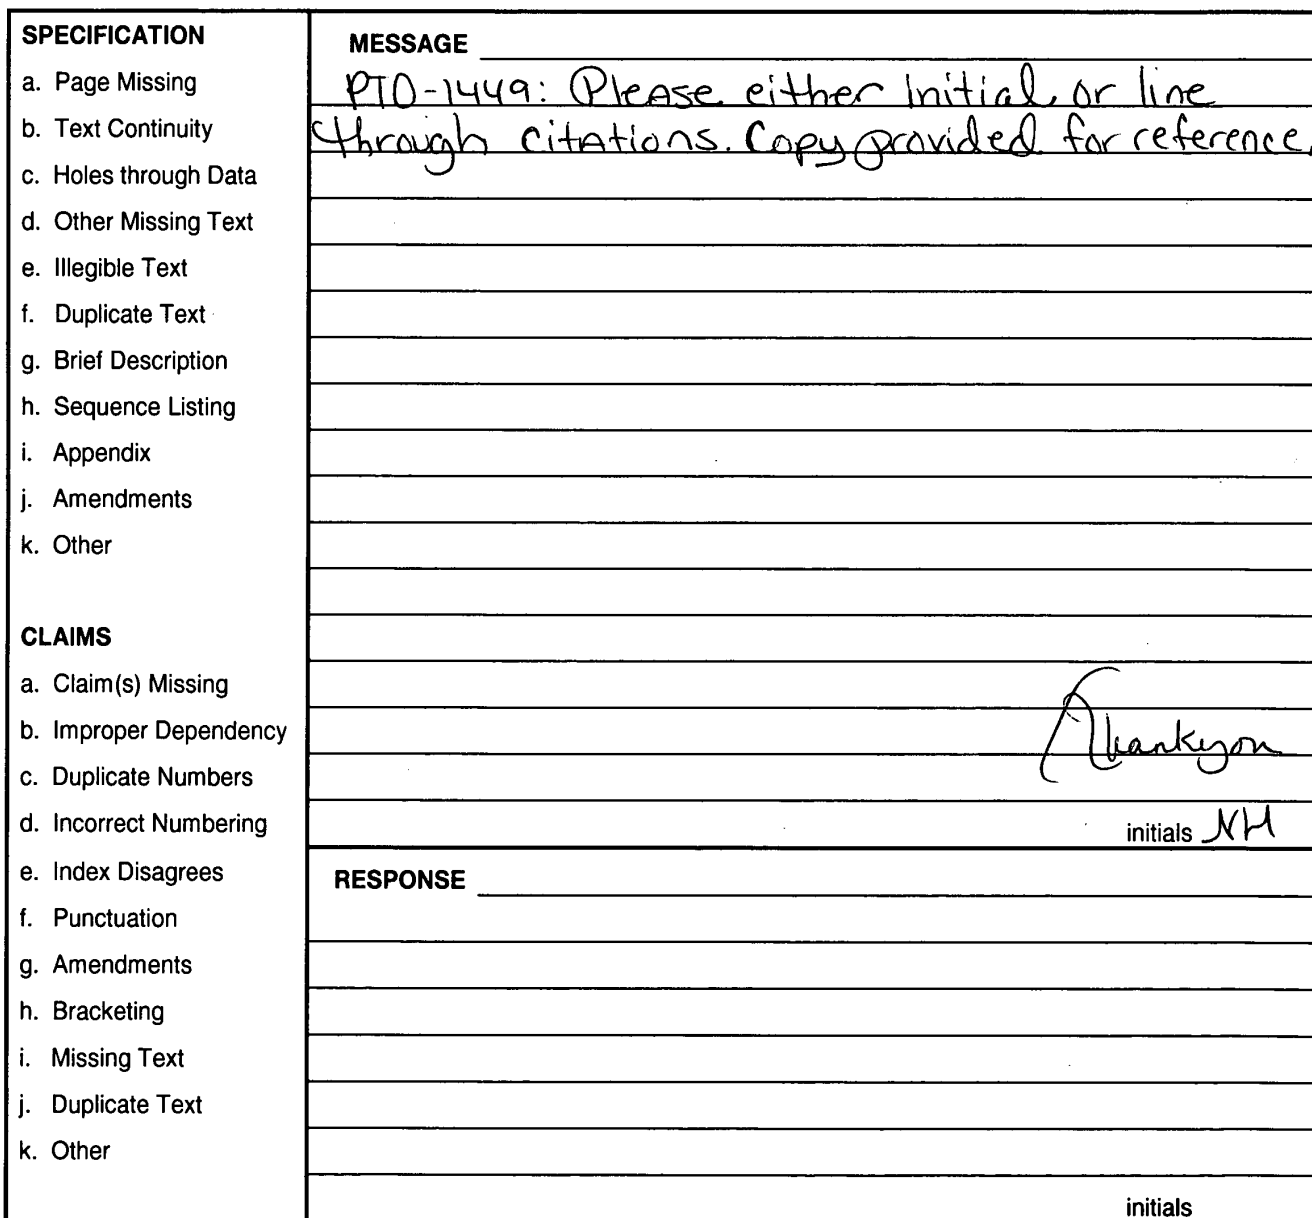 SPECIFICATION
a. Page Missing
b. Text Continuity
c. Holes through Data
d. Other Missing Text
e. Illegible Text
f. Duplicate Text
g. Brief Description
h. Sequence Listing
i. Appendix
j. Amendments
k. Other
CLAIMS
a. Claim(s) Missing
b. Improper Dependency
c. Duplicate Numbers
d. Incorrect Numbering
e. Index Disagrees
f. Punctuation
g. Amendments
h. Bracketing
i. Missing Text
j. Duplicate Text
k. Other
MESSAGE
PTO-1449: Please either Initial or line
through citations. Copy provided for reference.
Thankyou
initials NH
RESPONSE
initials